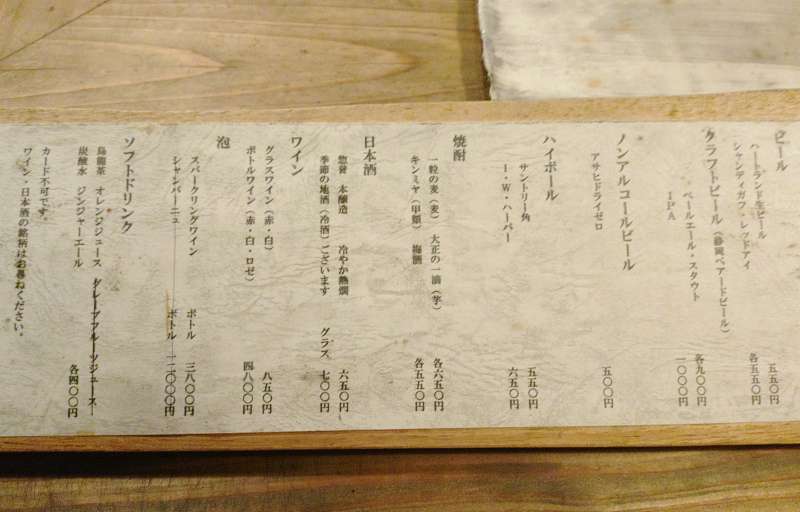 ビール
ハートランド生ビール 五五〇円
シャンディガフ・レッドアイ 各五五〇円
クラフトビール（静岡ベアードビール）
ペールエール・スタウト 各九〇〇円
IPA 一〇〇〇円
ノンアルコールビール
アサヒドライゼロ 五〇〇円
ハイボール
サントリー角 五五〇円
I・W・ハーパー 六五〇円
焼酎
一粒の麦（麦） 大正の一滴（芋） 各六五〇円
キンミヤ（甲類） 梅酒 各五五〇円
日本酒
惣誉 本醸造 冷やか熱燗 六五〇円
季節の地酒（冷酒）ございます グラス 七〇〇円
ワイン
グラスワイン（赤・白） 八五〇円
ボトルワイン（赤・白・ロゼ） 四八〇〇円
泡
スパークリングワイン ボトル 三八〇〇円
シャンパーニュ ボトル 一二〇〇〇円
ソフトドリンク
烏龍茶 オレンジジュース グレープフルーツジュース
炭酸水 ジンジャーエール 各四〇〇円
カード不可です。
ワイン・日本酒の銘柄はお尋ねください。